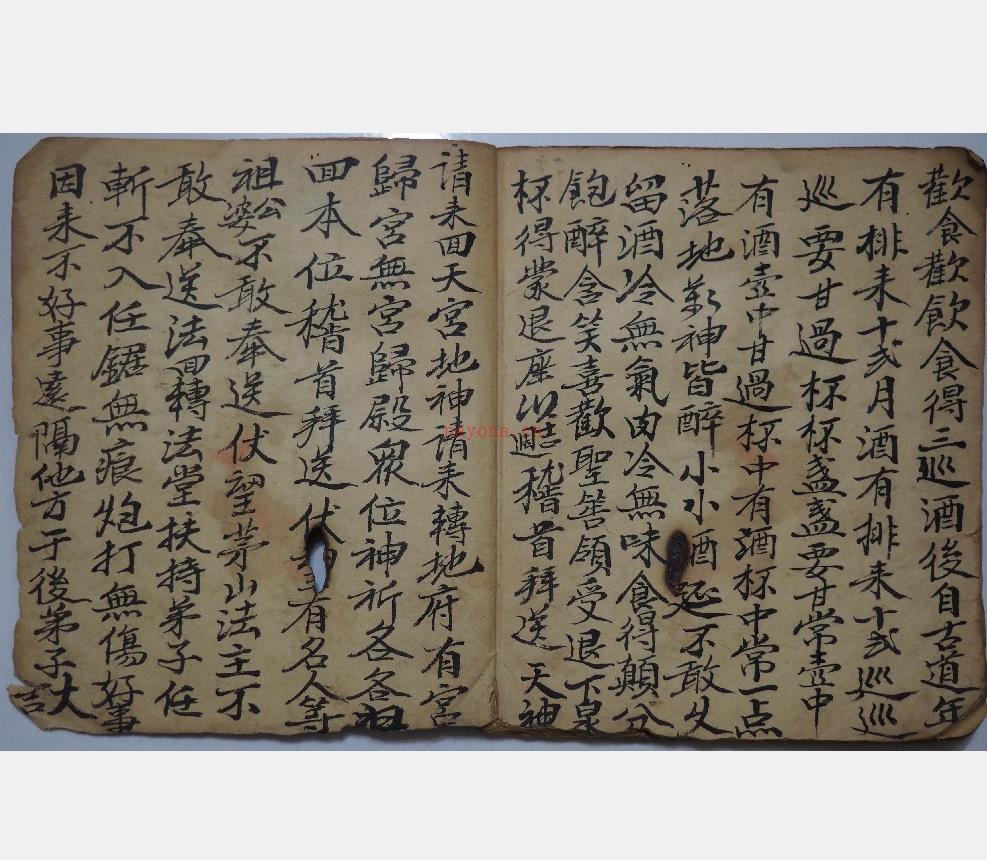 歡食歡飲食得三巡酒後自古道年
有排来十弍月酒有排来十弍巡巡
巡要甘過杯杯盞盞要甘常壺中
有酒壺中甘過杯中有酒杯中常一点
落地萬神皆醉小小酒延不敢久
留酒冷無氣肉冷無味食得顛分
飽醉含笑喜歡聖筶領受退下泉
杯得蒙退座 稽首拜送天神
請来回天宮地神請来轉地府有宮
歸宮無宮歸殿眾位神祈各各
回本位稽首拜送伏 有名人等
祖公婆不敢奉送伏望茅山法主不
敢奉送法回轉法堂扶持弟子任
斬不入任鋸無痕炮打無傷好事
因来不好事遠隔他方于後弟子大
吉
nayona.cn